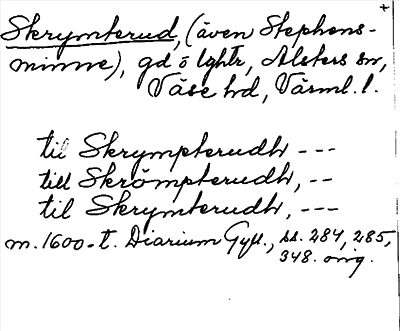 Skrymterud, (även Stephens-
minne), gd o lghtr, Alsters sn,
Väse hd, Värml. l.
til Skrympterudh ---
till Skrömpterudh, --
til Skrymterudh, ---
m. 1600-t. Diarium Gyll., ss. 284, 285,
348. orig.